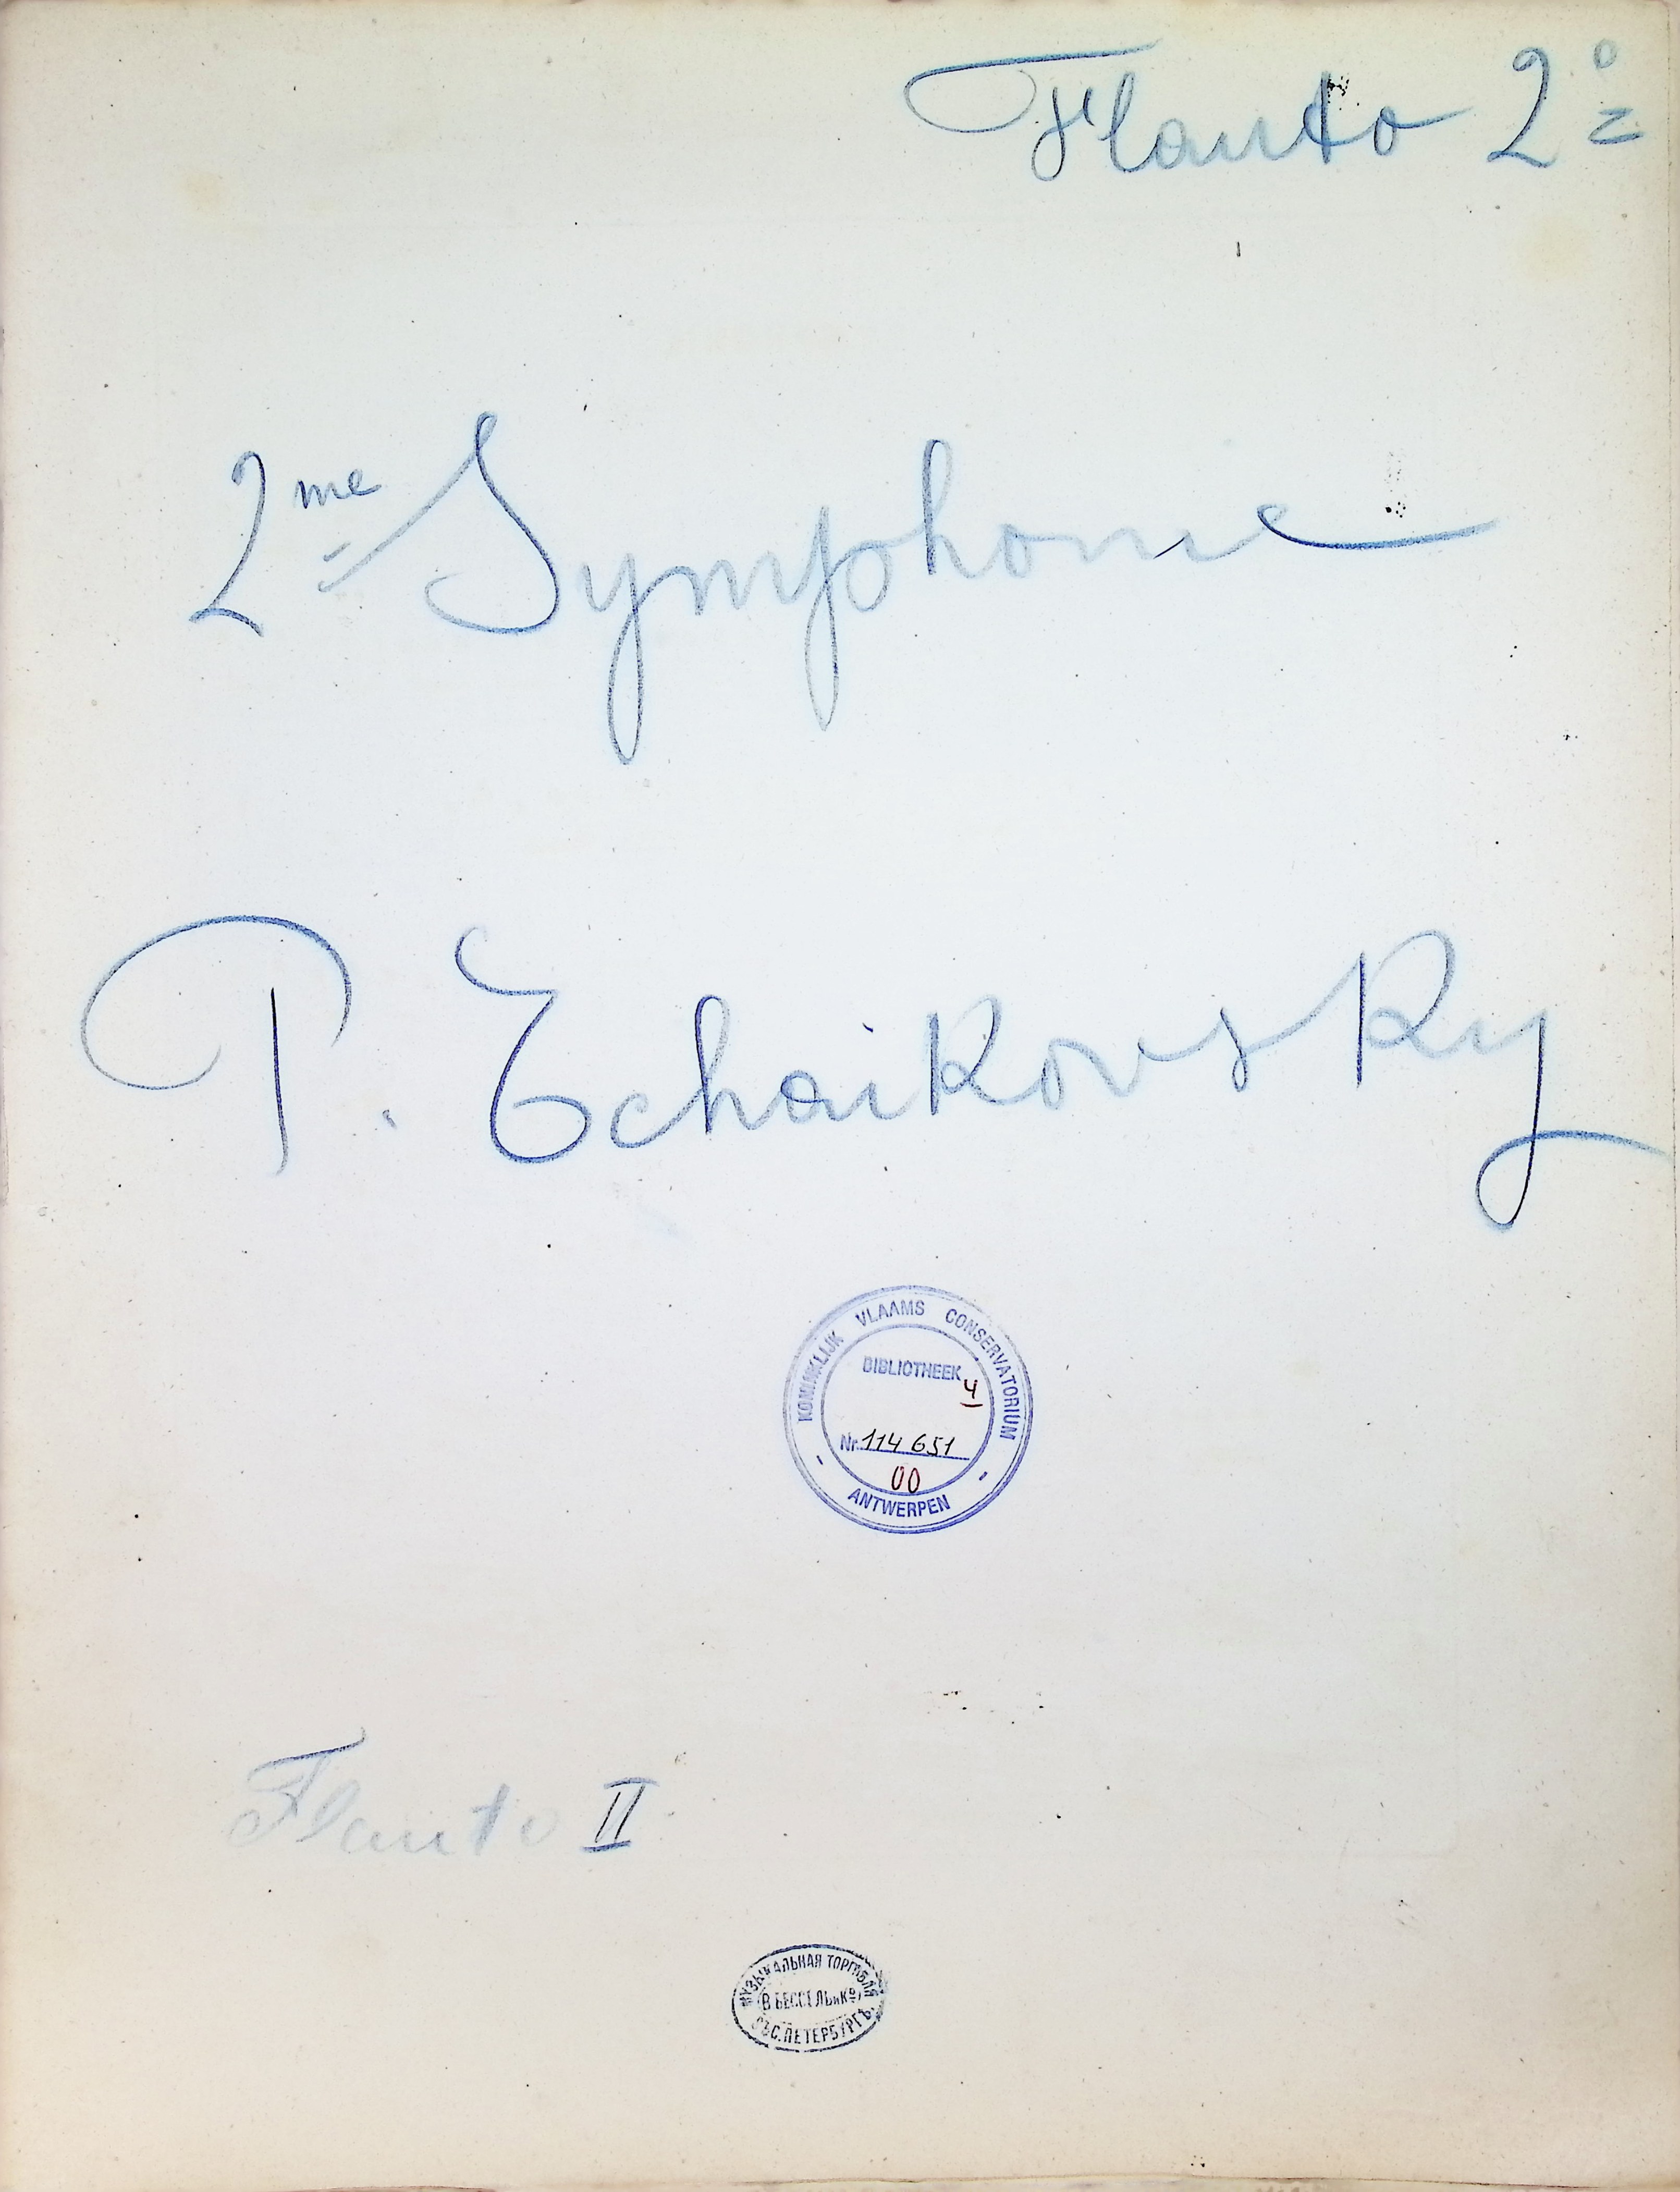 Flauto 2º
2me Symphonie
P. Tchaikovsky
KONINKLIJK VLAAMS CONSERVATORIUM
BIBLIOTHEEK
4
Nr. 114 651
00
- ANTWERPEN -
Flauto II
МУЗЫКАЛЬНАЯ ТОРГОВЛЯ
В. БЕССЕЛЬ и Кº
ВЪ С. ПЕТЕРБУРГЪ